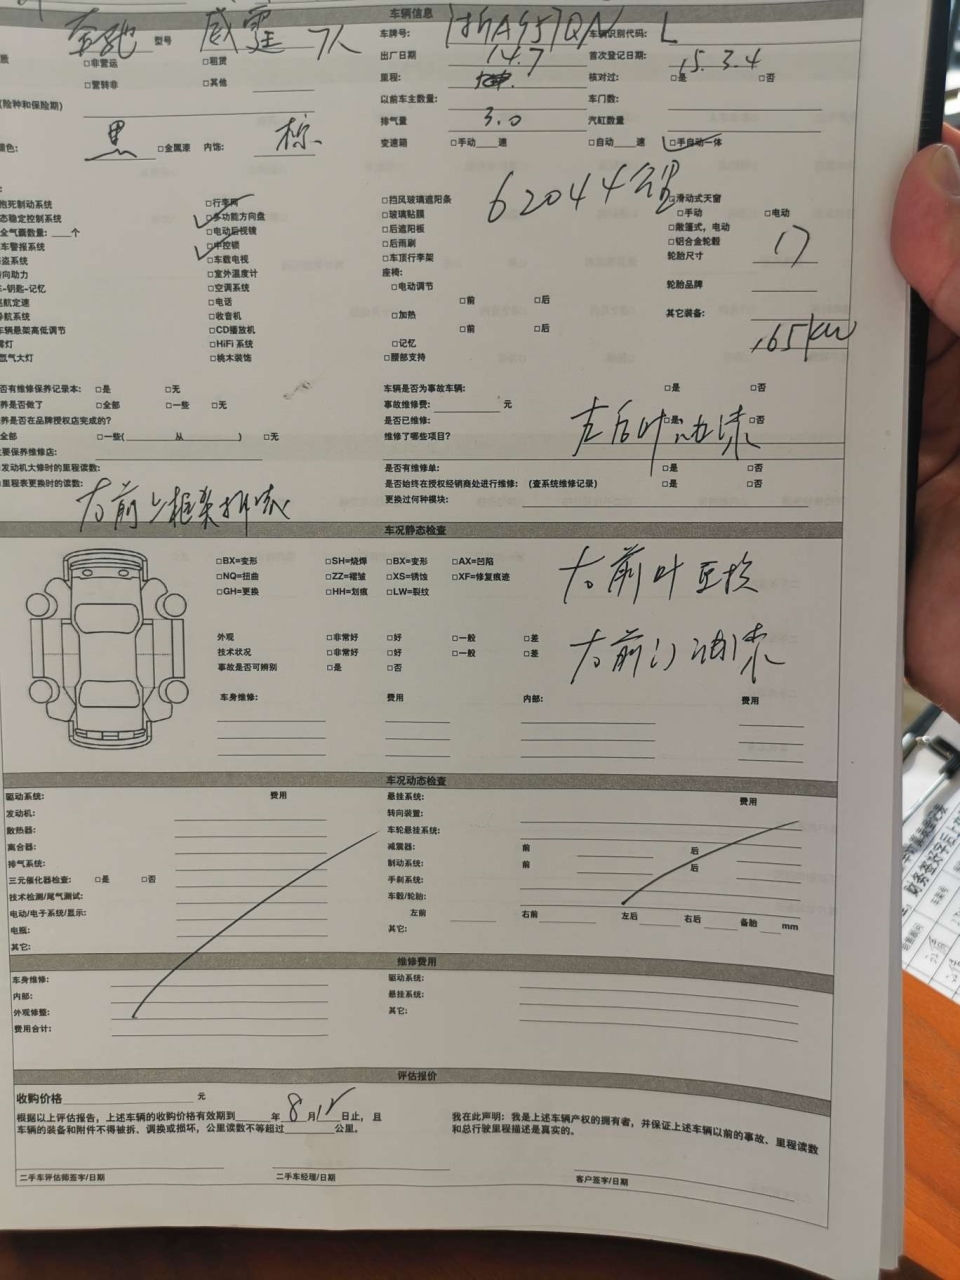 车辆信息
奔驰 型号 威霆 7人 车牌号: 浙A957QN 车辆识别代码: L
□非营运 □租赁 出厂日期 14.7 首次登记日期: 15.3.4
□营转非 □其他 里程: 核对过: □是 □否
(险种和保险期) 以前车主数量: 车门数:
排气量 3.0 汽缸数量
颜色: 黑 □金属漆 内饰: 棕 变速箱 □手动 速 □自动 速 □手自动一体
62044公里
抱死制动系统 □行李网 □挡风玻璃遮阳条 □滑动式天窗
态稳定控制系统 □多功能方向盘 □玻璃贴膜 □手动 □电动
全气囊数量: 个 □电动后视镜 □后遮阳板 □敞篷式,电动
车警报系统 □中控锁 □后雨刷 □铝合金轮毂
盗系统 □车载电视 □车顶行李架 轮胎尺寸 17
向助力 □室外温度计 座椅:
-钥匙-记忆 □空调系统 □电动调节 轮胎品牌
巡航定速 □电话 □前 □后
导航系统 □收音机 □加热 其它装备: 165kw
车辆悬架高低调节 □CD播放机 □前 □后
雾灯 □HiFi 系统 □记忆
氙气大灯 □桃木装饰 □腰部支持
否有维修保养记录本: □是 □无 车辆是否为事故车辆: □是 □否
养是否做了 □全部 □一些 □无 事故维修费: 元
养是否在品牌授权店完成的? 是否已维修: □是、 □否
全部 □一些( 从 ) □无 维修了哪些项目? 左后叶油漆
主要保养维修店:
发动机大修时的里程读数: 是否有维修单: □是 □否
里程表更换时的读数: 是否始终在授权经销商处进行维修: (查系统维修记录) □是 □否
右前 更换过何种模块:
车况静态检查
□BX=变形 □SH=烧焊 □BX=变形 □AX=凹陷
□NQ=扭曲 □ZZ=褶皱 □XS=锈蚀 □XF=修复痕迹
□GH=更换 □HH=划痕 □LW=裂纹
右前叶更换
外观 □非常好 □好 □一般 □差
技术状况 □非常好 □好 □一般 □差
事故是否可辨别 □是 □否
右前门油漆
车身维修: 费用 内部: 费用
车况动态检查
驱动系统: 费用 悬挂系统: 费用
发动机: 转向装置:
散热器: 车轮悬挂系统:
离合器: 减震器: 前 后
排气系统: 制动系统: 前 后
三元催化器检查: □是 □否 手刹系统:
技术检测/尾气测试: 车毂/轮胎:
电动/电子系统/显示: 左前 右前 左后 右后 备胎 mm
电瓶: 其它:
其它:
维修费用
车身维修: 驱动系统:
内部: 悬挂系统:
外观修整: 其它:
费用合计:
评估报价
收购价格 元
根据以上评估报告,上述车辆的收购价格有效期到 年 8 月 12 日止,且
车辆的装备和附件不得被拆、调换或损坏,公里读数不等超过 公里。
我在此声明:我是上述车辆产权的拥有者,并保证上述车辆以前的事故、里程读数
和总行驶里程描述是真实的。
二手车评估师签字/日期 二手车经理/日期 客户签字/日期